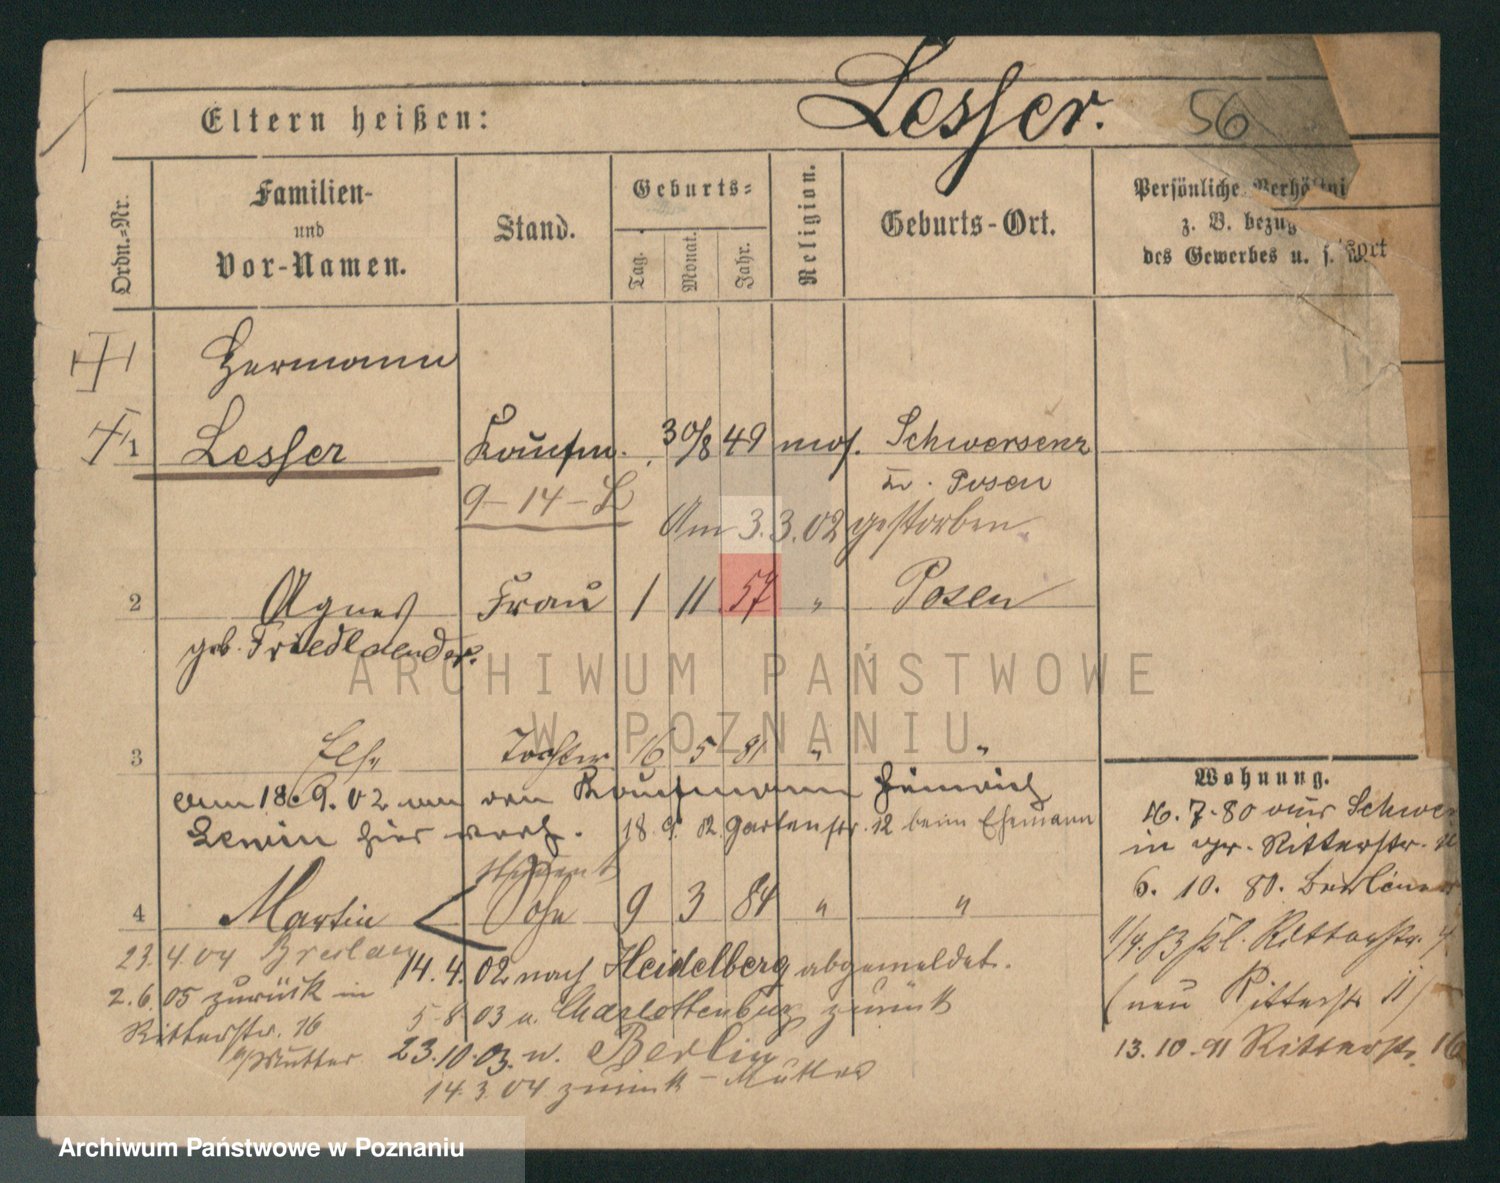 Lesser. 56
Eltern heißen:
Ordn.-Nr.
Familien-
und
Vor-Namen.
Stand.
Geburts-
Tag. Monat. Jahr.
Religion.
Geburts-Ort.
Persönliche
z. B. bezug
des Gewerbes u. s.
Hermann
1 Lesser Kaufm. 30/8 49 mos. Schwersenz
Posen
9-14-
Am 3.3.02 gestorben.
2 Agnes Frau 1 11 57 " Posen
geb. Friedlaender.
3 Else Tochter 16 5 81 " "
am 18.9.02 an den Kaufmann Heinrich
Lewin hier verh. 18.9.02. Gartenstr. 12 beim Ehemann
Student
4 Martin Sohn 9 3 84 " "
14.4.02 nach Heidelberg abgemeldet.
5 8 03 v. Charlottenburg zurück
23.10.03. n. Berlin
14.3.04 zurück - Mutter
23.4 04 Breslau
2.6.05 zurück in
Ritterstr. 16
b/Mutter
Wohnung.
16.7.80 aus Schwer
in gr. Ritterstr.
6. 10. 80. Berliner
1/4.83 kl. Ritterstr. 4
(neu Ritterstr 11)
13.10.91 Ritterstr. 16
ARCHIWUM PAŃSTWOWE
W POZNANIU
Archiwum Państwowe w Poznaniu